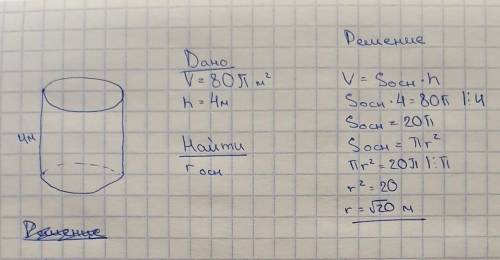 4м
Решение
Дано
V = 80π м²
h = 4м
Найти
r осн
Решение
V = Sосн · h
Sосн · 4 = 80π |:4
Sосн = 20π
Sосн = πr²
πr² = 20π |:π
r² = 20
r = √20 м